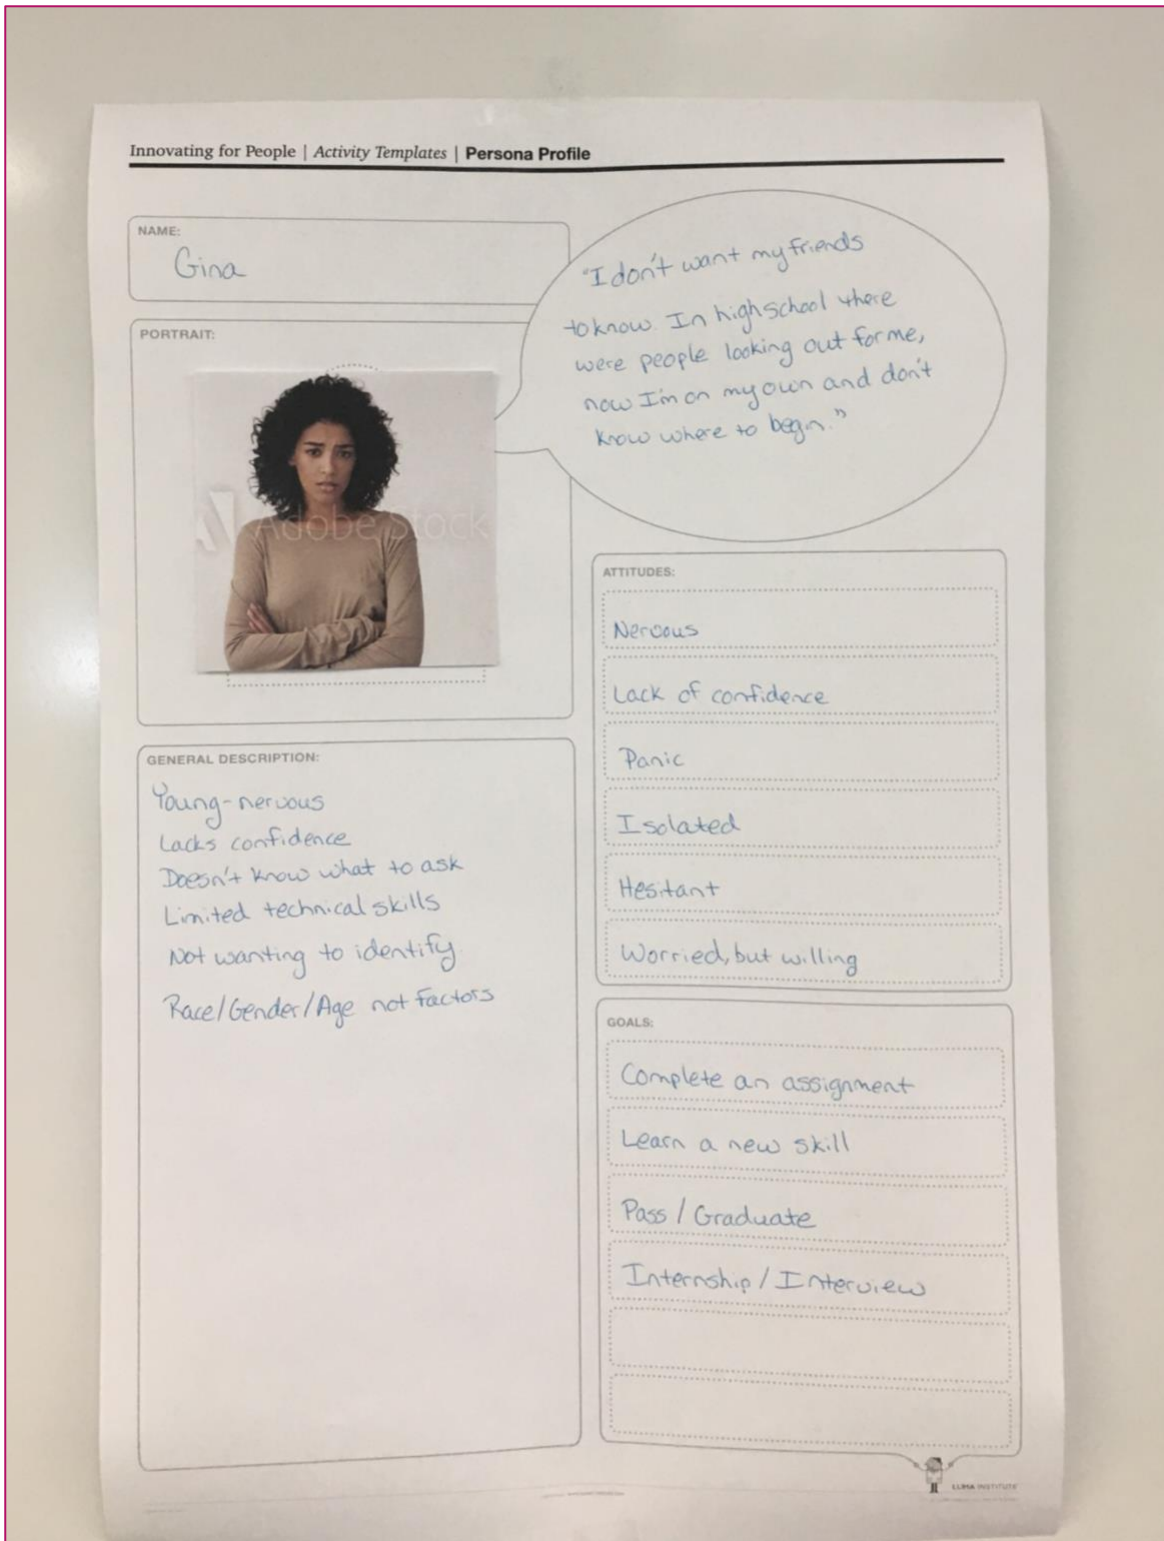 Innovating for People | Activity Templates | Persona Profile
NAME:
Gina
"I don't want my friends
to know. In high school there
were people looking out for me,
now I'm on my own and don't
know where to begin."
PORTRAIT:
Adobe Stock
GENERAL DESCRIPTION:
Young-nervous
Lacks confidence
Doesn't know what to ask
Limited technical skills
Not wanting to identify
Race/Gender/Age not factors
ATTITUDES:
Nervous
Lack of confidence
Panic
Isolated
Hesitant
Worried, but willing
GOALS:
Complete an assignment
Learn a new skill
Pass / Graduate
Internship / Interview
LUMA INSTITUTE